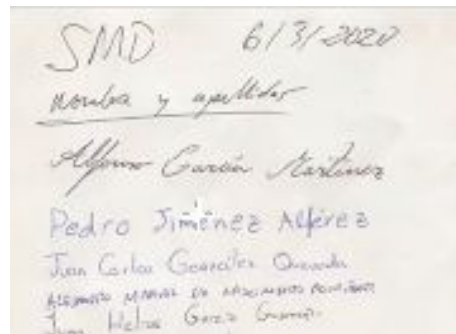 SMD 6/3/2020
Nombre y apellidos
Alfonso García Martínez
Pedro Jiménez Alférez
Juan Carlos González Quesada
Alejandro
Juan García